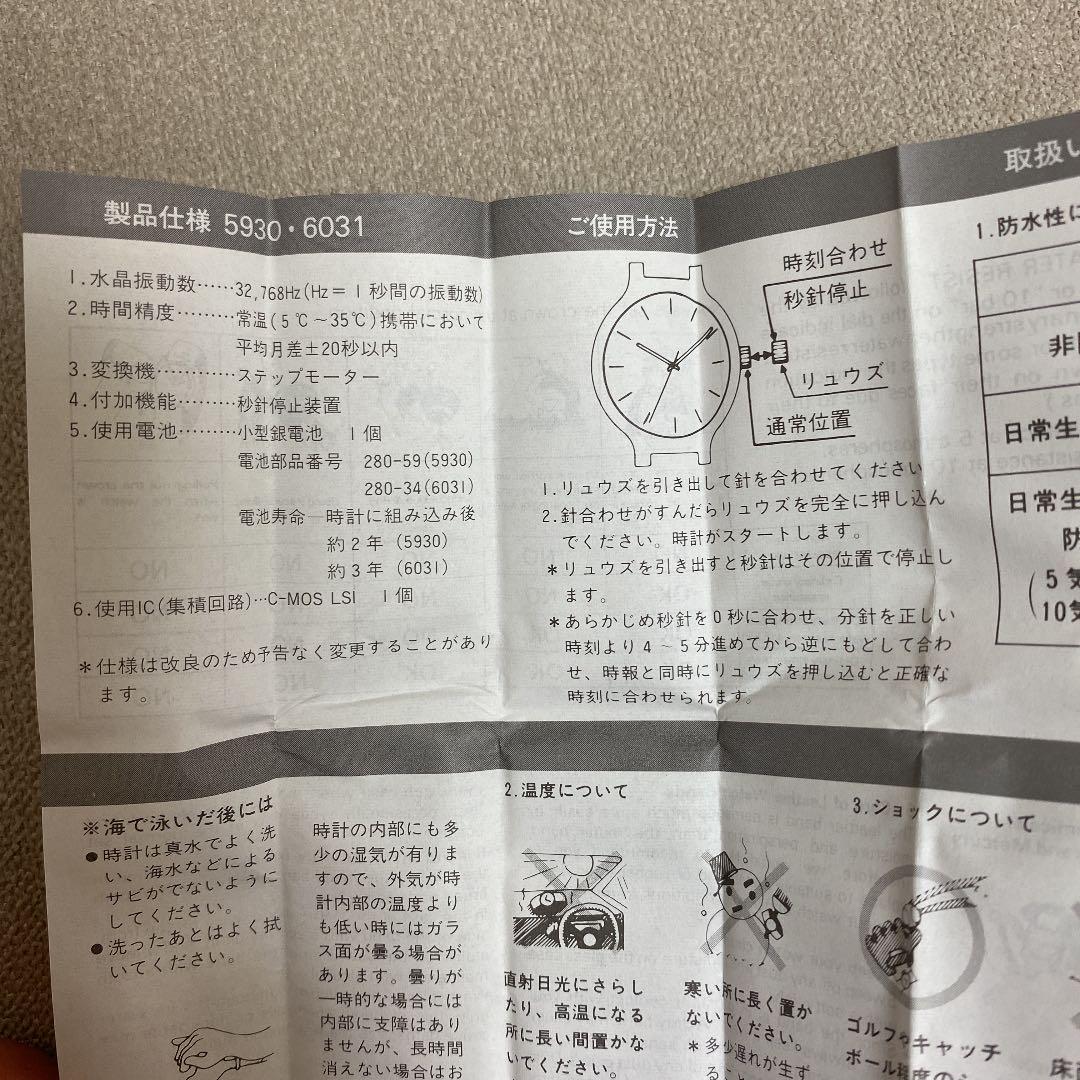 製品仕様 5930・6031
1.水晶振動数……32,768Hz(Hz=1秒間の振動数)
2.時間精度………常温(5℃～35℃)携帯において
平均月差±20秒以内
3.変換機…………ステップモーター
4.付加機能………秒針停止装置
5.使用電池………小型銀電池 1個
電池部品番号 280-59(5930)
280-34(6031)
電池寿命―時計に組み込み後
約2年(5930)
約3年(6031)
6.使用IC(集積回路)…C-MOS LSI 1個
*仕様は改良のため予告なく変更することがあり
ます。
ご使用方法
時刻合わせ
秒針停止
リュウズ
通常位置
1.リュウズを引き出して針を合わせてください
2.針合わせがすんだらリュウズを完全に押し込ん
でください。時計がスタートします。
*リュウズを引き出すと秒針はその位置で停止し
ます。
*あらかじめ秒針を0秒に合わせ、分針を正しい
時刻より4～5分進めてから逆にもどして合わ
せ、時報と同時にリュウズを押し込むと正確な
時刻に合わせられます。
取扱い
1.防水性に
日常生
日常生
防
5気
10気
※海で泳いだ後には
●時計は真水でよく洗
い、海水などによる
サビがでないように
してください。
●洗ったあとはよく拭
いてください。
時計の内部にも多
少の湿気が有りま
すので、外気が時
計内部の温度より
も低い時にはガラ
ス面が曇る場合が
あります。曇りが
一時的な場合には
内部に支障はあり
ませんが、長時間
消えない場合はお
2.温度について
直射日光にさらし
たり、高温になる
所に長い間置かな
いでください。
寒い所に長く置か
ないでください。
*多少遅れが生ず
3.ショックについて
ゴルフやキャッチ
ボール程度の